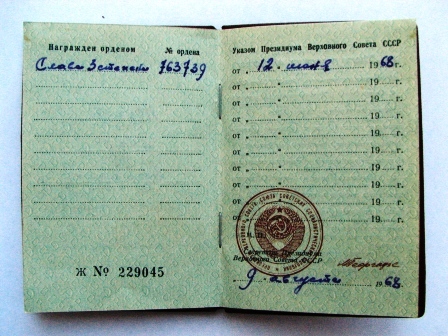 Награжден орденом
№ ордена
Слава 3 степени 763739
Ж № 229045
Указом Президиума Верховного Совета СССР
от „ 12 „ июня 1968 г.
от „ „ 19 г.
от „ „ 19 г.
от „ „ 19 г.
от „ „ 19 г.
от „ „ 19 г.
от „ „ 19 г.
от „ „ 19 г.
от „ 19 г.
М.
Секретарь Президиума
Верховного Совета СССР
9 августа 1968 г.